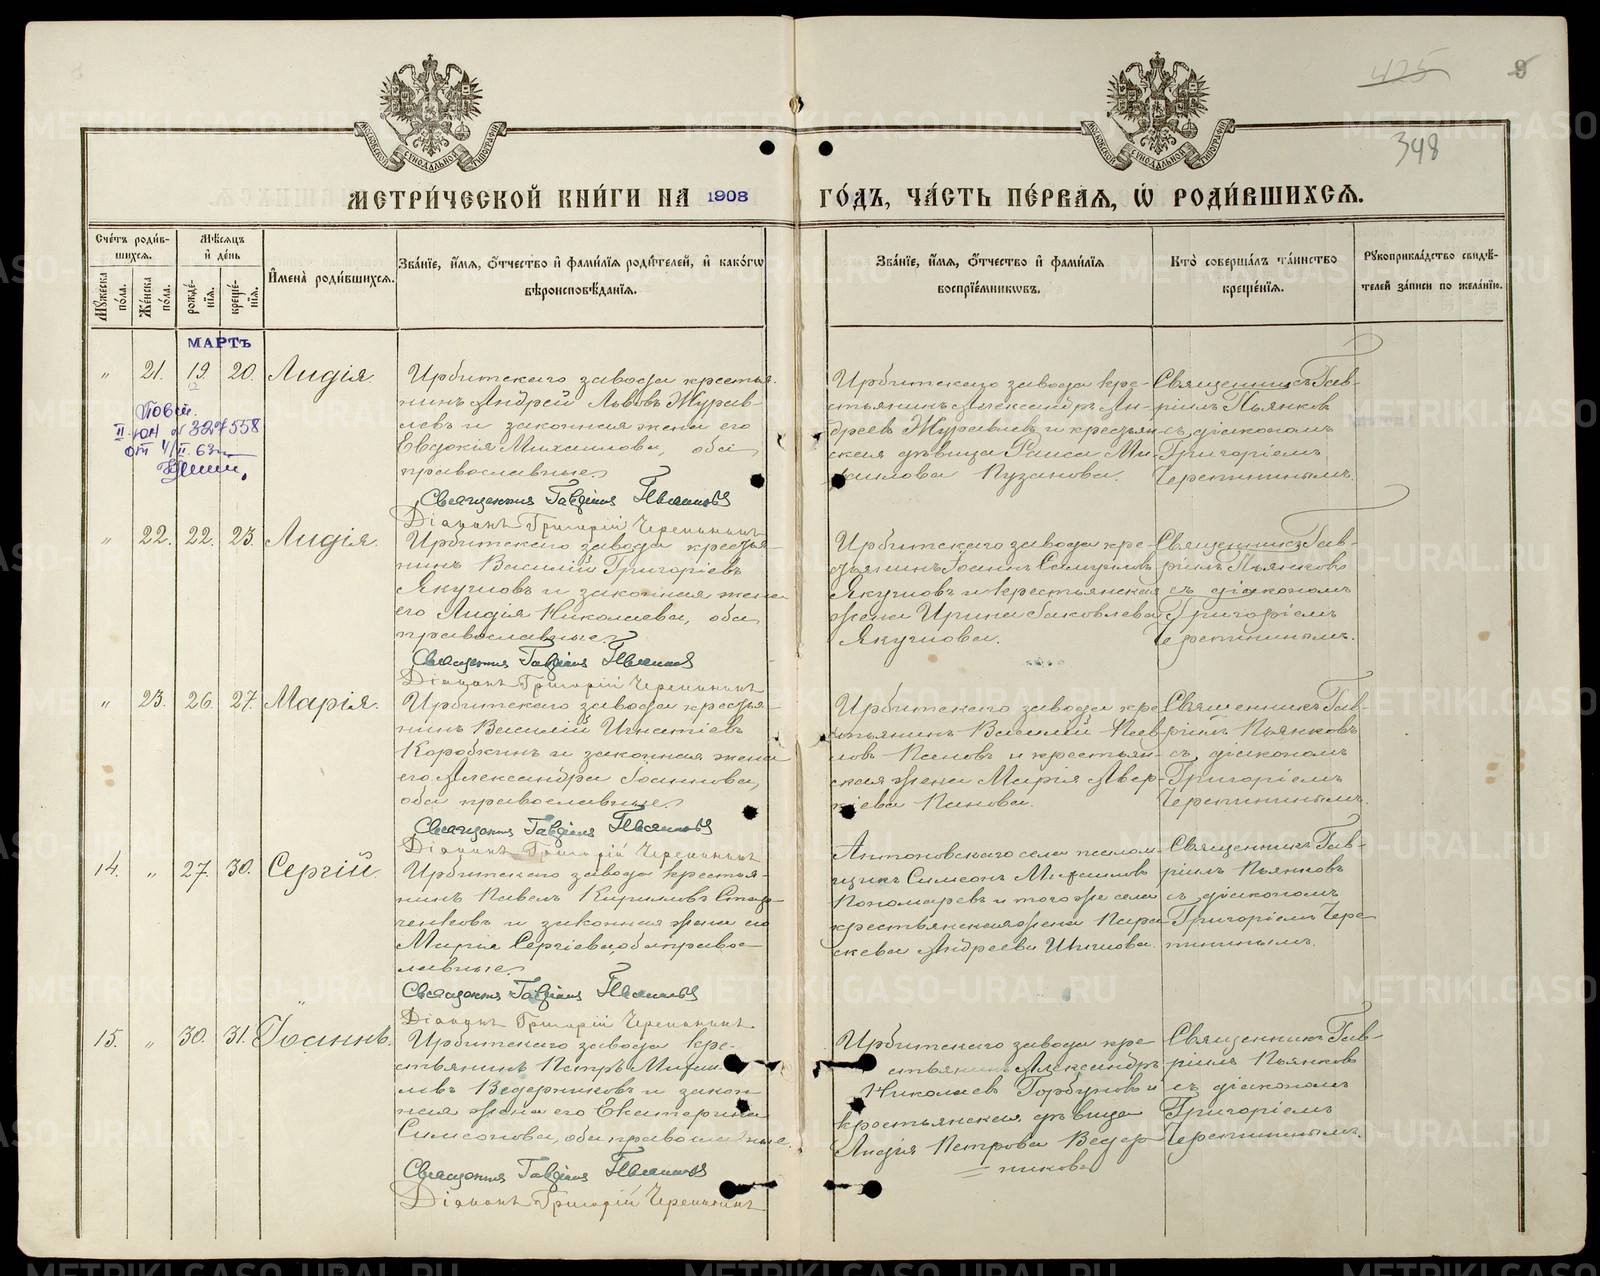 425
9
348
МОСКОВСКОЙ СѴНОДАЛЬНОЙ ТИПОГРАФІИ
МОСКОВСКОЙ СѴНОДАЛЬНОЙ ТИПОГРАФІИ
МЕТРИ́ЧЕСКОЙ КНИ́ГИ НА 1908 ГО́ДЪ, ЧА́СТЬ ПЕ́РВАѦ, Ѡ РОДИ́ВШИХСѦ.
Счетъ роди́в-
шихсѧ.
Мꙋжеска по́ла.
Же́нска по́ла.
Мѣсѧцъ
и де́нь
рожде́-
нїѧ.
креще́-
нїѧ.
Имена̀ роди́вшихсѧ.
Зва́нїе, и́мѧ, ѻ́тчество и фами́лїѧ роди́телей, и како́гѡ
вѣроисповѣ́данїѧ.
Зва́нїе, и́мѧ, ѻ́тчество и фами́лїѧ
воспрїе́мникѡвъ.
Кто̀ соверша́лъ та́инство
креще́нїѧ.
Рꙋкоприкла́дство свидѣ́-
телей за́писи по жела́нїю.
МАРТЪ
„ 21. 19. 20. Лидія.
12
Повт.
II-ЮА № 327558
от 4/II.63
Ирбитскаго завода крестья-
нинъ Андрей Львовъ Журав-
левъ и законная жена его
Евдокія Михаилова, оба
православные.
Священникъ Гавріилъ Пьянковъ
Діаконъ Григорій Черепанинъ
Ирбитскаго завода кре-
стьянинъ Александръ Ан-
дреевъ Журавлевъ и крестьян-
ская дѣвица Раиса Ми-
хаилова Пузанова.
Священникъ Гав-
ріилъ Пьянков
съ діакономъ
Григоріемъ
Черепанинымъ.
„ 22. 22. 23. Лидія.
Ирбитскаго завода крестья-
нинъ Василій Григоріевъ
Якушовъ и законная жена
его Лидія Николаева, оба
православные.
Священникъ Гавріилъ Пьянковъ
Діаконъ Григорій Черепанинъ
Ирбитскаго завода кре-
стьянинъ Іоаннъ Самуиловъ
Якушовъ и крестьянская
жена Ирина Іаковлева
Якушова.
Священникъ Гав-
ріилъ Пьянковъ
съ діакономъ
Григоріемъ
Черепанинымъ.
„ 23. 26. 27. Марія.
Ирбитскаго завода крестья-
нинъ Василій Игнатіевъ
Коробкинъ и законная жена
его Александра Іоаннова,
оба православные.
Священникъ Гавріилъ Пьянковъ
Діаконъ Григорій Черепанинъ
Ирбитскаго завода кре-
стьянинъ Василій Пав-
ловъ Пановъ и крестьян-
ская жена Марія Авер-
кіева Панова.
Священникъ Гав-
ріилъ Пьянковъ
съ діакономъ
Григоріемъ
Черепанинымъ.
14. „ 27. 30. Сергій.
Ирбитскаго завода крестья-
нинъ Павелъ Кириловъ
ченковъ и законная жена его
Марія Сергіева, оба право-
славные.
Священникъ Гавріилъ Пьянковъ
Діаконъ Григорій Черепанинъ
Антоновскаго села псалом-
щикъ Симеонъ Михаиловъ
Пономаревъ и того же села
крестьянская жена Пара-
скева Андреева Шишова.
Священникъ Гав-
ріилъ Пьянковъ
съ діакономъ
Григоріемъ Чере-
панинымъ.
15. „ 30. 31. Іоаннъ.
Ирбитскаго завода кре-
стьянинъ Петръ Михаи-
ловъ Ведерниковъ и закон-
ная жена его Екатерина
Симеонова, оба православные.
Священникъ Гавріилъ Пьянковъ
Діаконъ Григорій Черепанинъ
Ирбитскаго завода кре-
стьянинъ Александръ
Николаевъ Горбуновъ и
крестьянская дѣвица
Лидія Петрова Ведер-
никова
Священникъ Гав-
ріилъ Пьянков
съ діакономъ
Григоріемъ
Черепанинымъ.
METRIKI.GASO-URAL.RU